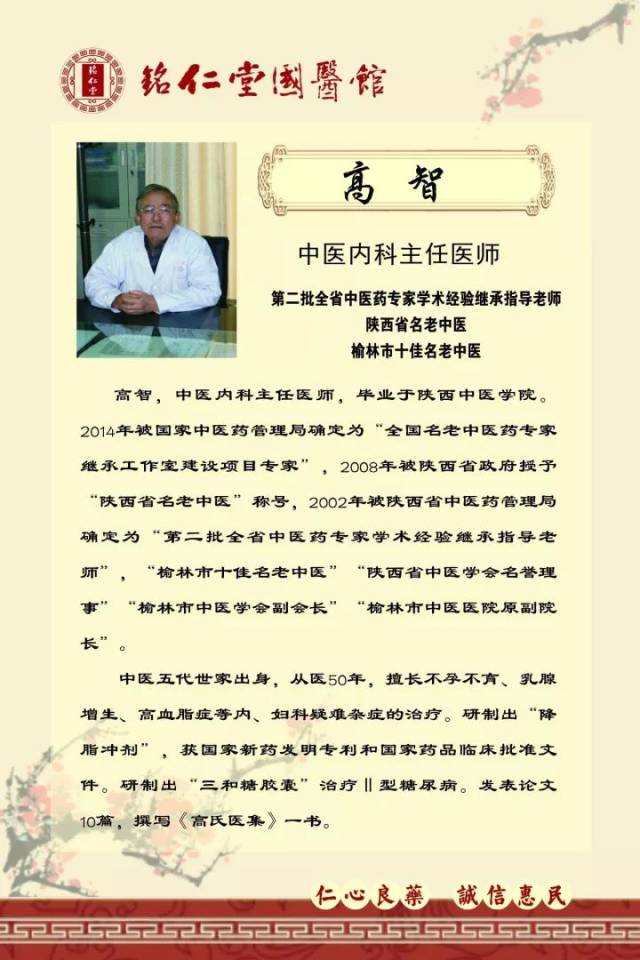 铭仁堂
铭仁堂國醫館
高智
中医内科主任医师
第二批全省中医药专家学术经验继承指导老师
陕西省名老中医
榆林市十佳名老中医
高智，中医内科主任医师，毕业于陕西中医学院。
2014年被国家中医药管理局确定为“全国名老中医药专家
继承工作室建设项目专家”，2008年被陕西省政府授予
“陕西省名老中医”称号，2002年被陕西省中医药管理局
确定为“第二批全省中医药专家学术经验继承指导老
师”，“榆林市十佳名老中医”“陕西省中医学会名誉理
事”“榆林市中医学会副会长”“榆林市中医医院原副院
长”。
中医五代世家出身，从医50年，擅长不孕不育、乳腺
增生、高血脂症等内、妇科疑难杂症的治疗。研制出“降
脂冲剂”，获国家新药发明专利和国家药品临床批准文
件。研制出“三和糖胶囊”治疗Ⅱ型糖尿病。发表论文
10篇，撰写《高氏医集》一书。
仁心良藥 誠信惠民